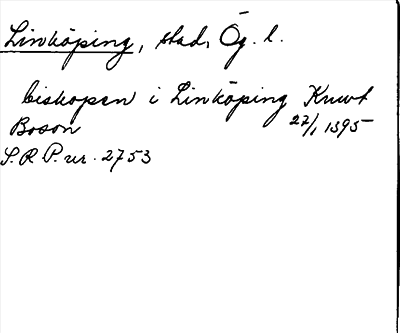 Linköping, stad, Ög. l.
biskopen i Linköping Knwt
Boson 27/1 1395
S.R.P. nr. 2753